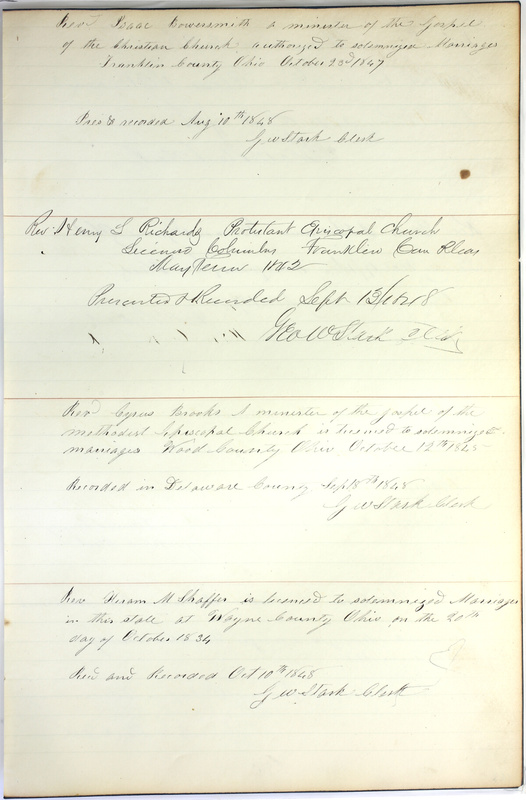 Rev Isaac Bowersmith a minister of the Gospel
of the Christian Church authorized to solemnized Marriages
Franklin County Ohio October 23d 1847
Recd & recorded Aug 10th 1848
G W Stark Clerk
Rev. Henry L Richards Protestant Episcopal Church
License Columbus Franklin Com Pleas
May Term 1842
Presented & Recorded Sept 13/1848
Geo W Stark Clk
Rev Cyrus Brooks A minister of the gospel of the
methodist Episcopal Church is licensed to solemnized
marriages Wood County Ohio October 12th 1845
Recorded in Delaware County Sept 18th 1848
G W Stark Clerk
Rev Hiram M Shaffer is licensed to solemnized Marriages
in this state at Wayne County Ohio on the 20th
day of October 1834
Recd and Recorded Oct 10th 1848
G W Stark Clerk